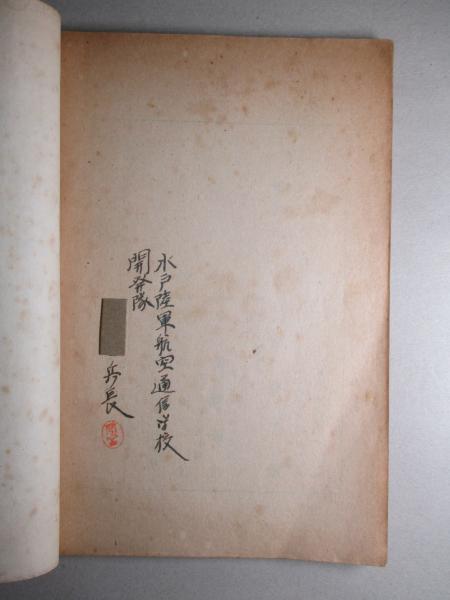 水戸陸軍航空通信学校
開発隊
兵長